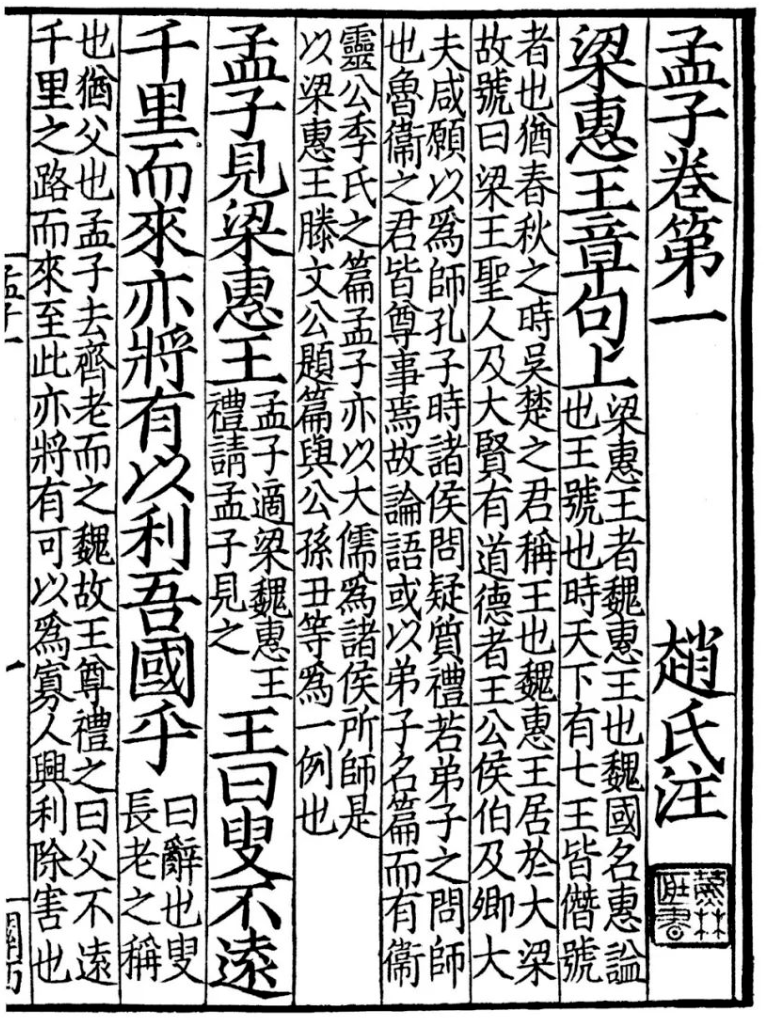 孟子卷第一 趙氏注
梁惠王章句上
梁惠王者魏惠王也魏國名惠謚
也王號也時天下有七王皆僭號
者也猶春秋之時吳楚之君稱王也魏惠王居於大梁
故號曰梁王聖人及大賢有道德者王公侯伯及卿大
夫咸願以爲師孔子時諸侯問疑質禮若弟子之問師
也魯衞之君皆尊事焉故論語或以弟子名篇而有衞
靈公季氏之篇孟子亦以大儒爲諸侯所師是
以梁惠王滕文公題篇與公孫丑等爲一例也
孟子見梁惠王
孟子適梁魏惠王
禮請孟子見之
王曰叟不遠
千里而來亦將有以利吾國乎
曰辭也叟
長老之稱
也猶父也孟子去齊老而之魏故王尊禮之曰父不遠
千里之路而來至此亦將有可以爲寡人興利除害也